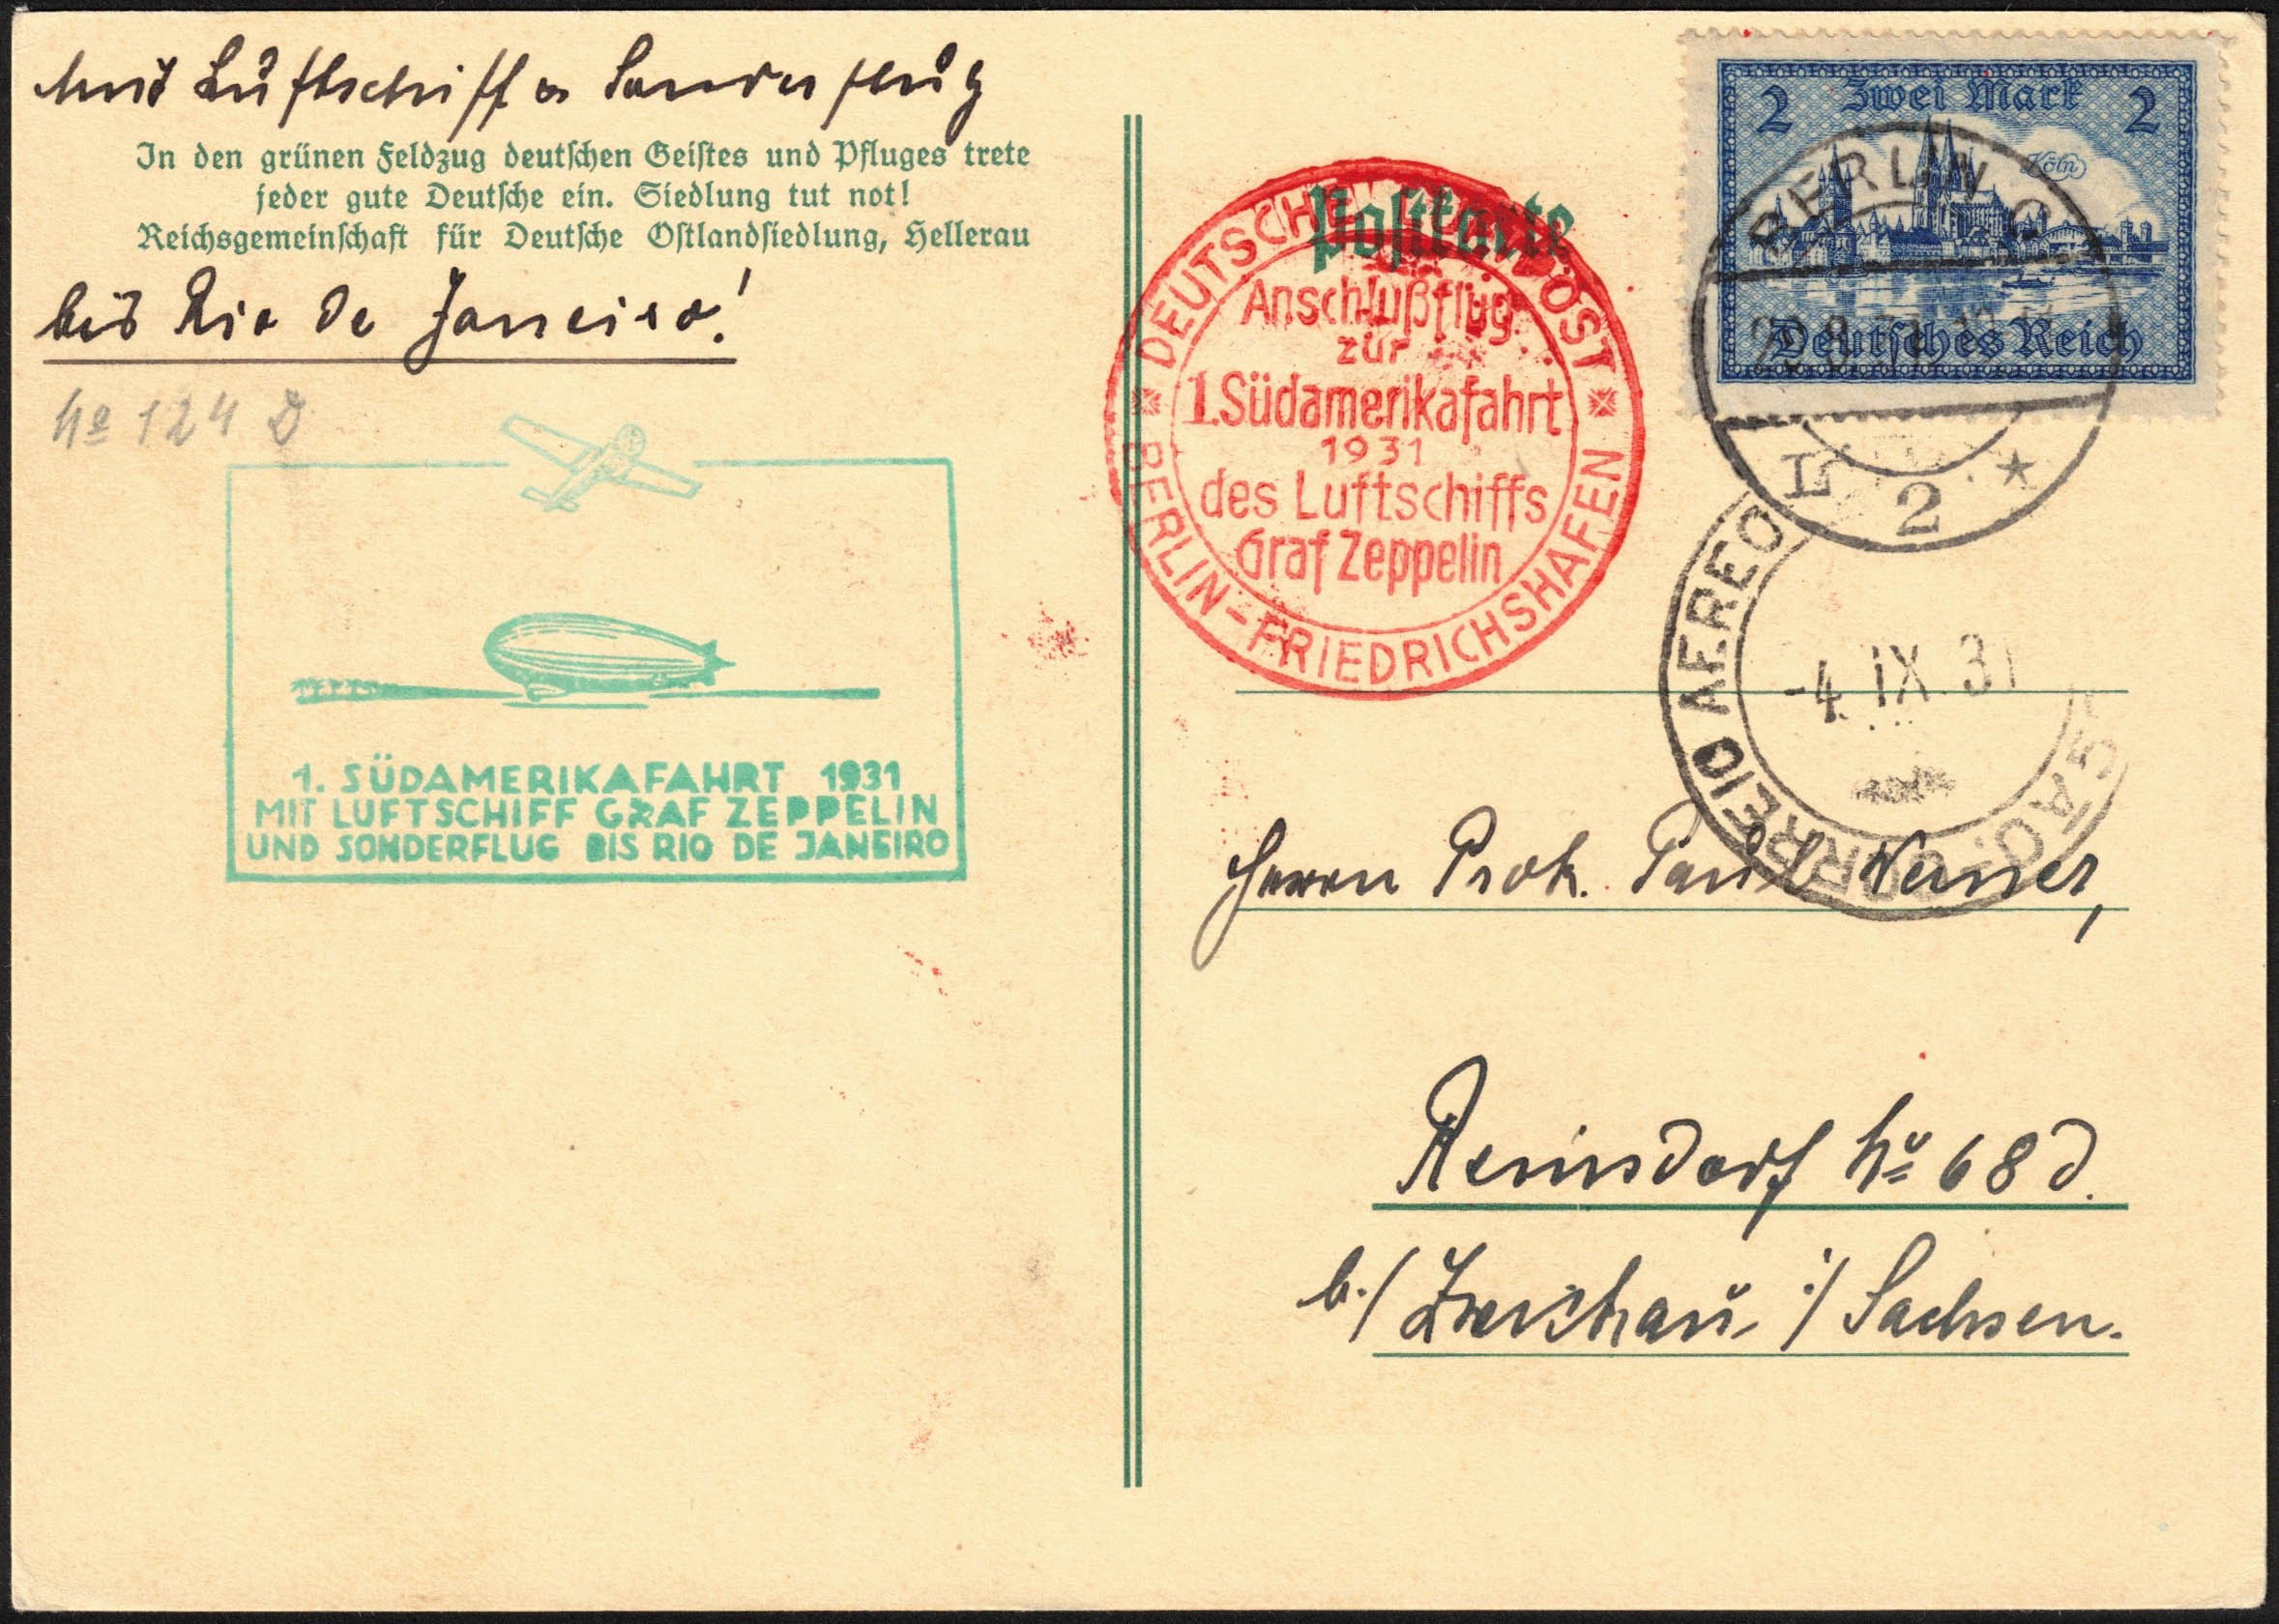 Mit Luftschiff u Sonderflug
In den grünen Feldzug deutschen Geistes und Pfluges trete
jeder gute Deutsche ein. Siedlung tut not!
Reichsgemeinschaft für Deutsche Ostlandsiedlung, Hellerau
bis Rio de Janeiro!
No 124 D
1. SÜDAMERIKAFAHRT 1931
MIT LUFTSCHIFF GRAF ZEPPELIN
UND SONDERFLUG BIS RIO DE JANEIRO
Postkarte
DEUTSCHE LUFTPOST
Anschlußflug
zur
1. Südamerikafahrt
1931
des Luftschiffs
Graf Zeppelin
BERLIN-FRIEDRICHSHAFEN
2 Zwei Mark 2
Köln
Deutsches Reich
BERLIN C
L 2 *
CORREIO AEREO
-4. IX. 31
Herrn Prok. Paul Werner,
Reinsdorf No 68 d.
b./ Zwickau i/ Sachsen.